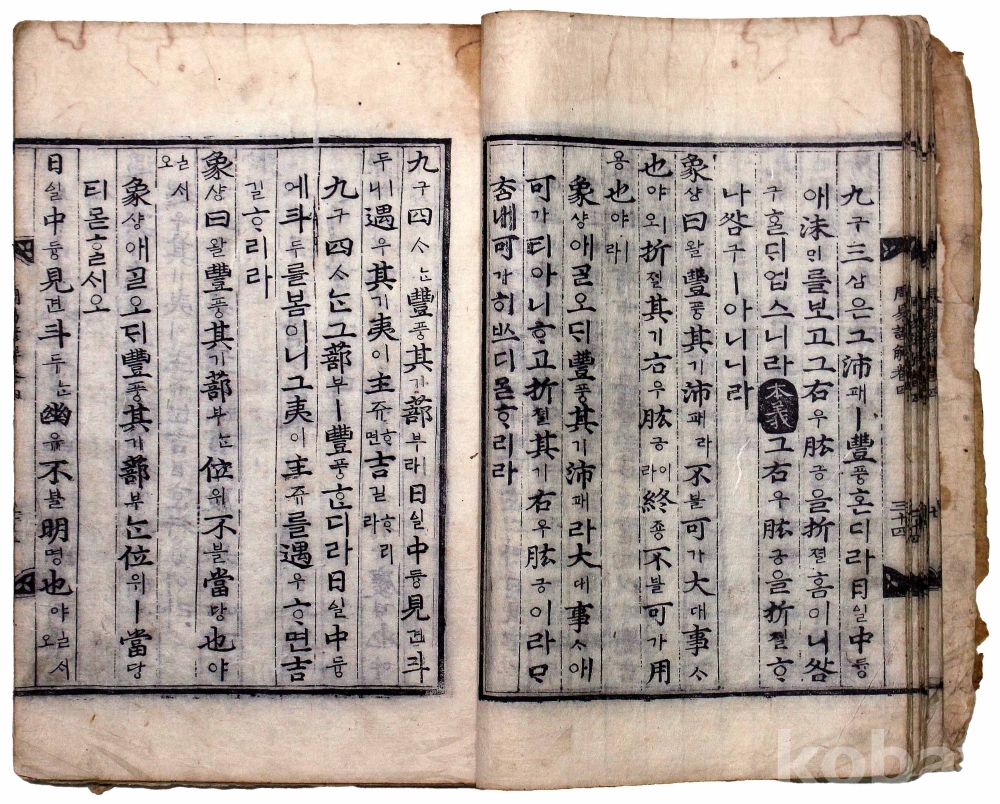 九구三삼은그沛패ㅣ豐풍혼디라日일中듕
애沬ᄆᆡ를보고그右우肱긍을折졀홈이니咎
구홀ᄃᆡ업스니라本義그右우肱긍을折졀ᄒᆞ
나咎구ㅣ아니니라
象샹曰왈豐풍其기沛패라不블可가大대事ᄉᆞ
也야ㅣ오折졀其기右우肱긍이라終죵不블可가用
용也야ㅣ라
象샹애ᄀᆞᆯ오ᄃᆡ豐풍其기沛패라大대事ᄉᆞ애
可가티아니ᄒᆞ고折졀其기右우肱긍이라ᄆᆞ
ᄎᆞᆷ내可가히ᄡᅳ디몯ᄒᆞ리라
九구四ᄉᆞᄂᆞᆫ豐풍其기蔀부ㅣ라日일中듕見견斗
두ㅣ니遇우其기夷이主쥬ᄒᆞ면吉길ᄒᆞ리라
九구四ᄉᆞᄂᆞᆫ그蔀부ㅣ豐풍ᄒᆞᆫ디라日일中듕
에斗두를봄이니그夷이主쥬를遇우ᄒᆞ면吉
길ᄒᆞ리라
象샹曰왈豐풍其기蔀부ᄂᆞᆫ位위不블當당也야
서오
象샹애ᄀᆞᆯ오ᄃᆡ豐풍其기蔀부ᄂᆞᆫ位위ㅣ當당
티몯ᄒᆞᆯ서오
日일中듕見견斗두ᄂᆞᆫ幽유不블明명也야서오
周易諺解卷四
三十四
koba